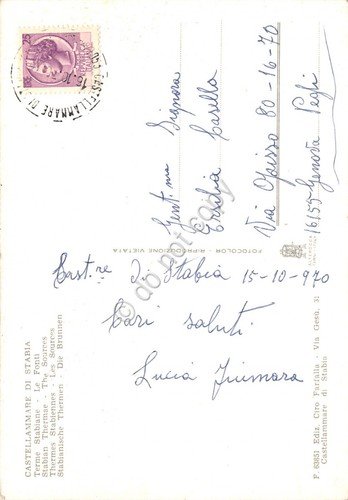 CASTELLAMMARE DI STABIA
Terme Stabiane - Le Fonti
Stabian Thermae - The Sources
Thermes Stabiennes - Les Sources
Stabianische Thermen - Die Brunnen
Cast.re di Stabia 15-10-970
Cari saluti
Lucia
FOTOCOLOR - RIPRODUZIONE VIETATA
Gent.ma Signora
Ersilia Casella
Via 80-16-70
16155 Genova Pegli
F. 63851 Ediz. Ciro Farfalla - Via Gesù, 31
Castellammare di Stabia
CASTELLAMMARE DI
25
do not copy